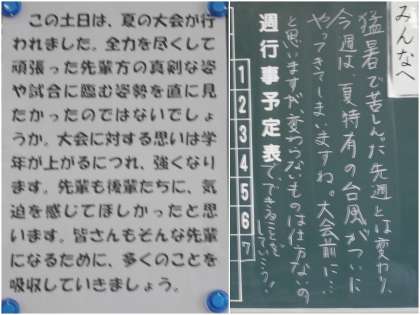 この土日は、夏の大会が行
われました。全力を尽くして
頑張った先輩方の真剣な姿
や試合に臨む姿勢を直に見
たかったのではないでしょ
うか。大会に対する思いは学
年が上がるにつれ、強くなり
ます。先輩も後輩たちに、気
迫を感じてほしかったと思
います。皆さんもそんな先輩
になるために、多くのことを
吸収していきましょう。
みんなへ
猛暑で苦しんだ先週とは変わり、
今週は、夏特有の台風がついに
やってきてしまいますね。大会前に…
と思いますが変わらないものは仕方ないの
で、できることを
していこう!
週行事予定表
1
2
3
4
5
6
7